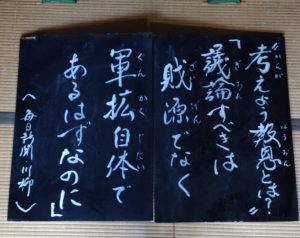 〝考えよう報恩とは?〟
「議論すべきは
財源でなく
軍拡自体で
あるはずなのに」
(毎日新聞川柳)